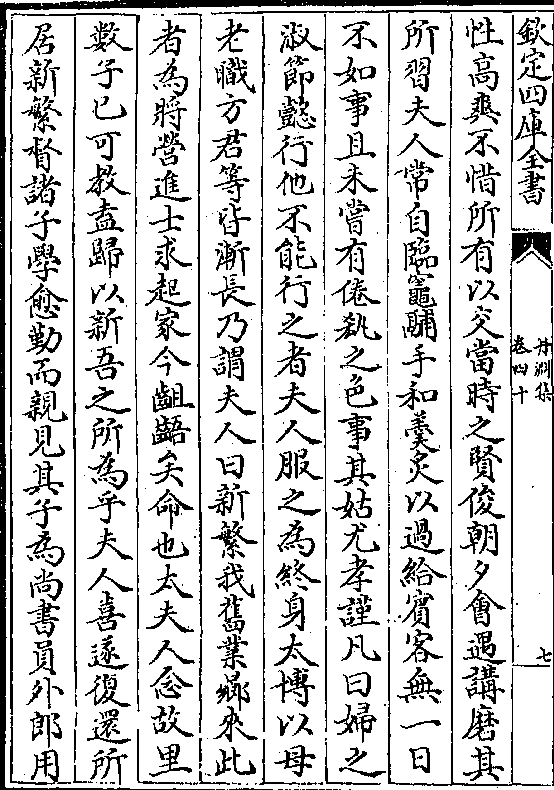 欽定四庫全書
丹淵集
卷四十
七
性高爽不惜所有以交當時之賢俊朝夕會遇講磨其
所習夫人常自臨竈䰞手和羹炙以過給賓客無一日
不如事且未嘗有倦𣣔之色事其姑尤孝謹凡曰婦之
淑節懿行他不能行之者夫人服之為終身太博以母
老職方君等皆漸長乃謂夫人曰新繁我舊業鄉來此
者為將營進士求起家今齟齬矣命也太夫人念故里
數子已可教盍歸以新吾之所為乎夫人喜遂復還所
居新繁督諸子學愈勤而親見其子為尚書員外郎用